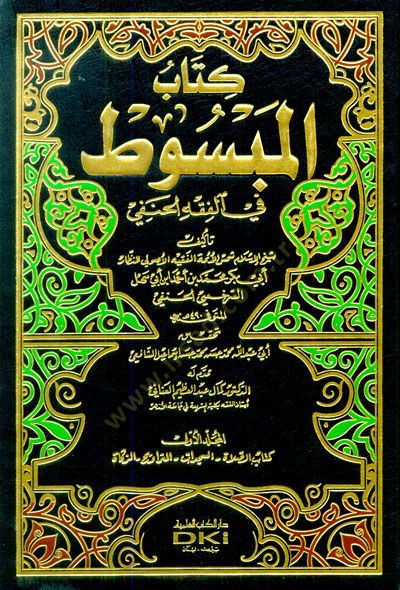 كِتَابُ
المَبْسُوط
في الفقه الحنفي
تأليف
شيخ الإسلام شمس الأئمة الفقيه الأصولي النظار
أبي بكر محمد بن أحمد بن أبي سهل
السرخسي الحنفي
المتوفى ٤٩٠ هـ
تحقيق
أبي عبد الله محمد حسن محمد حسن إسماعيل الشافعي
قدم له
الدكتور كمال عبد العظيم العناني
المجلد الأول
كتاب الصلاة - السجدات - التراويح - الزكاة
دار الكتب العلمية
DKi
بيروت - لبنان